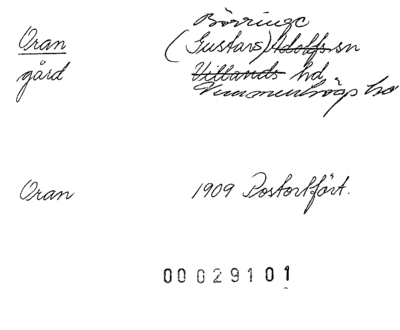 Börringe
Oran (Gustavs) Adolfs sn
gård Villands hd
Vemmenhögs hd
Oran 1909 Postortfört.
00029101